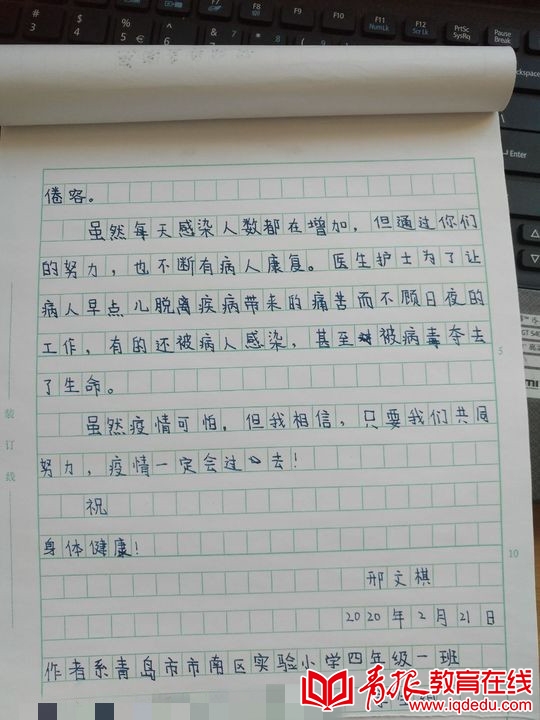 倦容。
虽然每天感染人数都在增加，但通过你们
的努力，也不断有病人康复。医生护士为了让
病人早点儿脱离疾病带来的痛苦而不顾日夜的
工作，有的还被病人感染，甚至被病毒夺去
了生命。
虽然疫情可怕，但我相信，只要我们共同
努力，疫情一定会过去！
祝
身体健康！
邢文棋
2020年2月21日
作者系青岛市市南区实验小学四年级一班
装订线
5
10
青报教育在线
www.iqdedu.com